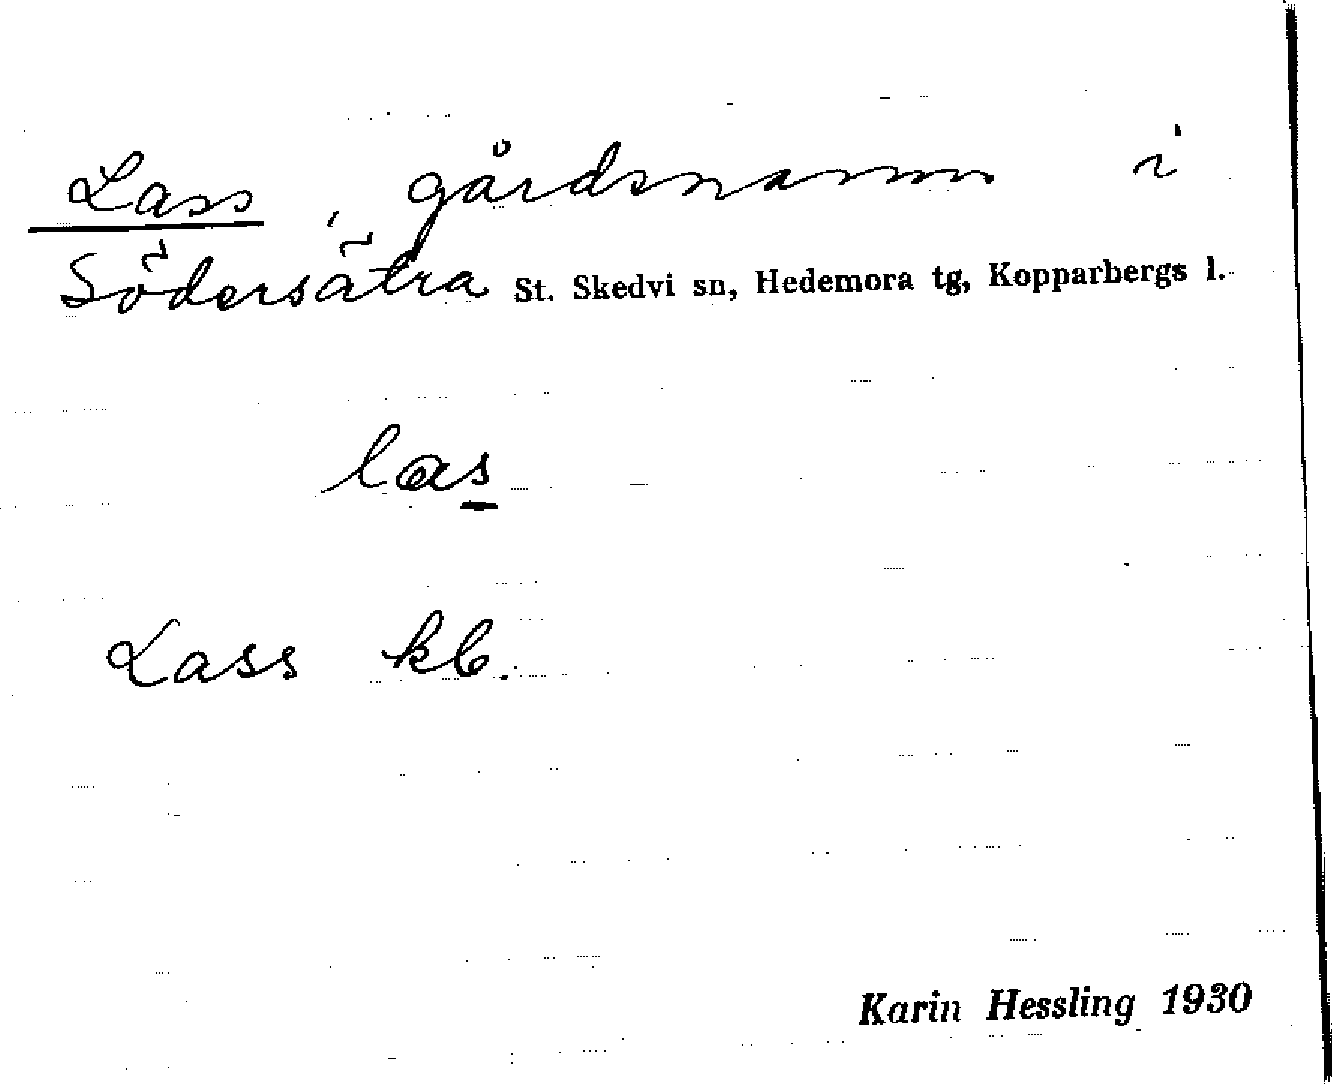 Lass, gårdsnamn i
Södersätra St. Skedvi sn, Hedemora tg, Kopparbergs l.
las
Lass kb.
Karin Hessling 1930